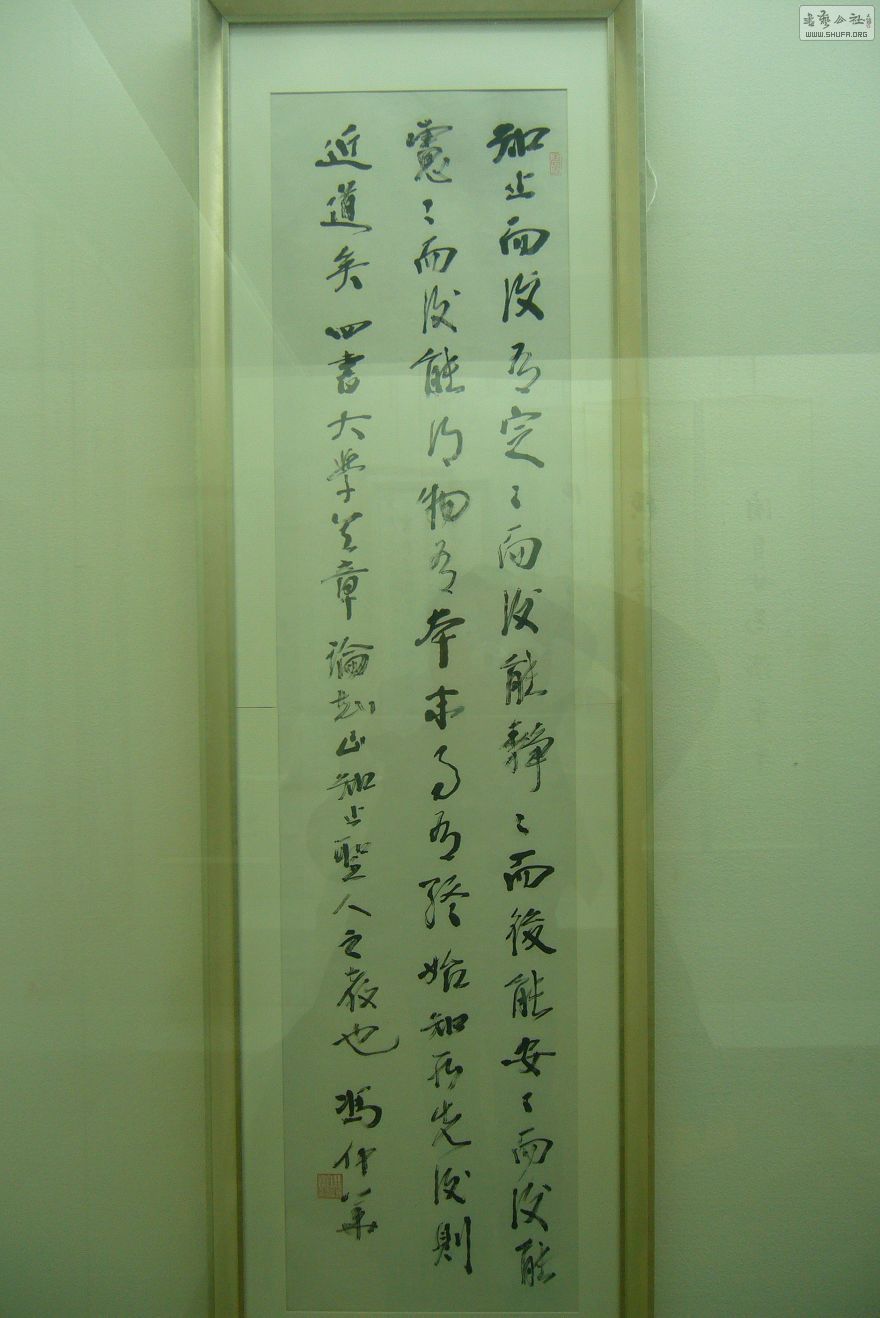 知止而後有定〻而後能靜〻而後能安〻而後能
慮〻而後能得物有本末事有終始知所先後則
近道矣 四書大學首章論起止知止聖人之教也 馮仲華
書藝公社
WWW.SHUFA.ORG